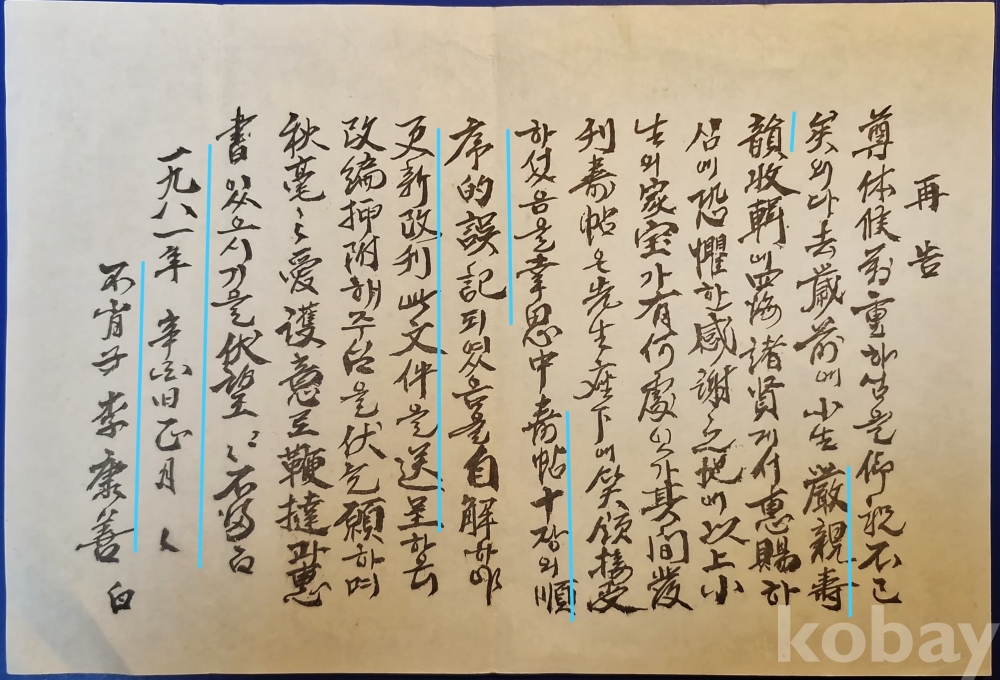 再告
尊体候萬重하심을仰祝不已
矣외다去歲前에小生嚴親壽
韻收輯에四海諸賢게서惠賜하
심에恐懼한感謝之地에以上小
生의家宝가有何處요가其間發
刊壽帖은先生座下에笑領接受
하섯음은幸思中壽帖十張의順
序的誤記되엿음을自解하야
更新改刊此文件을送呈하오니
改編押附해주심을伏乞願하며
秋毫之愛護意로鞭撻과惠
書잇으시기을伏望〻不備白
一九八一年 辛酉旧正月 人
不肖子 李康善 白
kobay